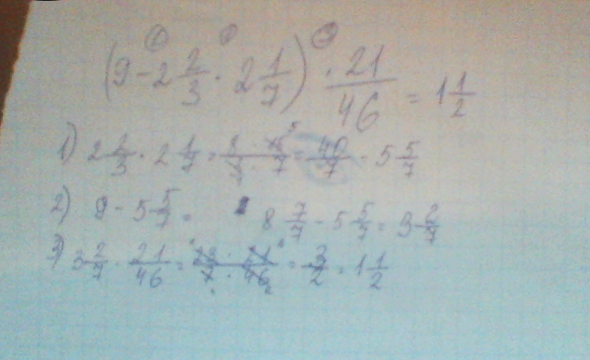 (9 - 2 2/3 · 2 1/7) · 21/46 = 1 1/2
1) 2 2/3 · 2 1/7 = 8 · 15/3 · 7 = 40/7 = 5 5/7
2) 9 - 5 5/7 = 8 7/7 - 5 5/7 = 3 2/7
3) 3 2/7 · 21/46 = 23 · 21/7 · 46 = 3/2 = 1 1/2